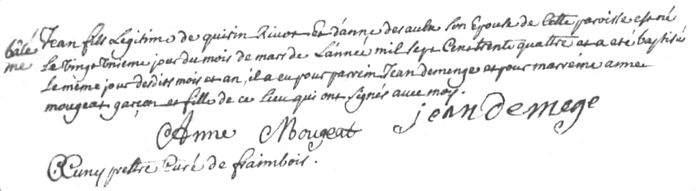 bâtê
me
Jean fils Légitime de quirin Rivot Et d'anne desaulx son Epouse de Cette paroisse est né
Le vingt unieme jour du mois de mars de L'année mil sept Cent trente quattre et a été baptisé
Le même jour desdits mois et an, il a eu pour parrein Jean demenge et pour marreine anne
mougeat garçon et fille de ce Lieu qui ont signés avec moy.
Anne Mougeat jean Demege
Cuny prettre Curé de fraimbois.